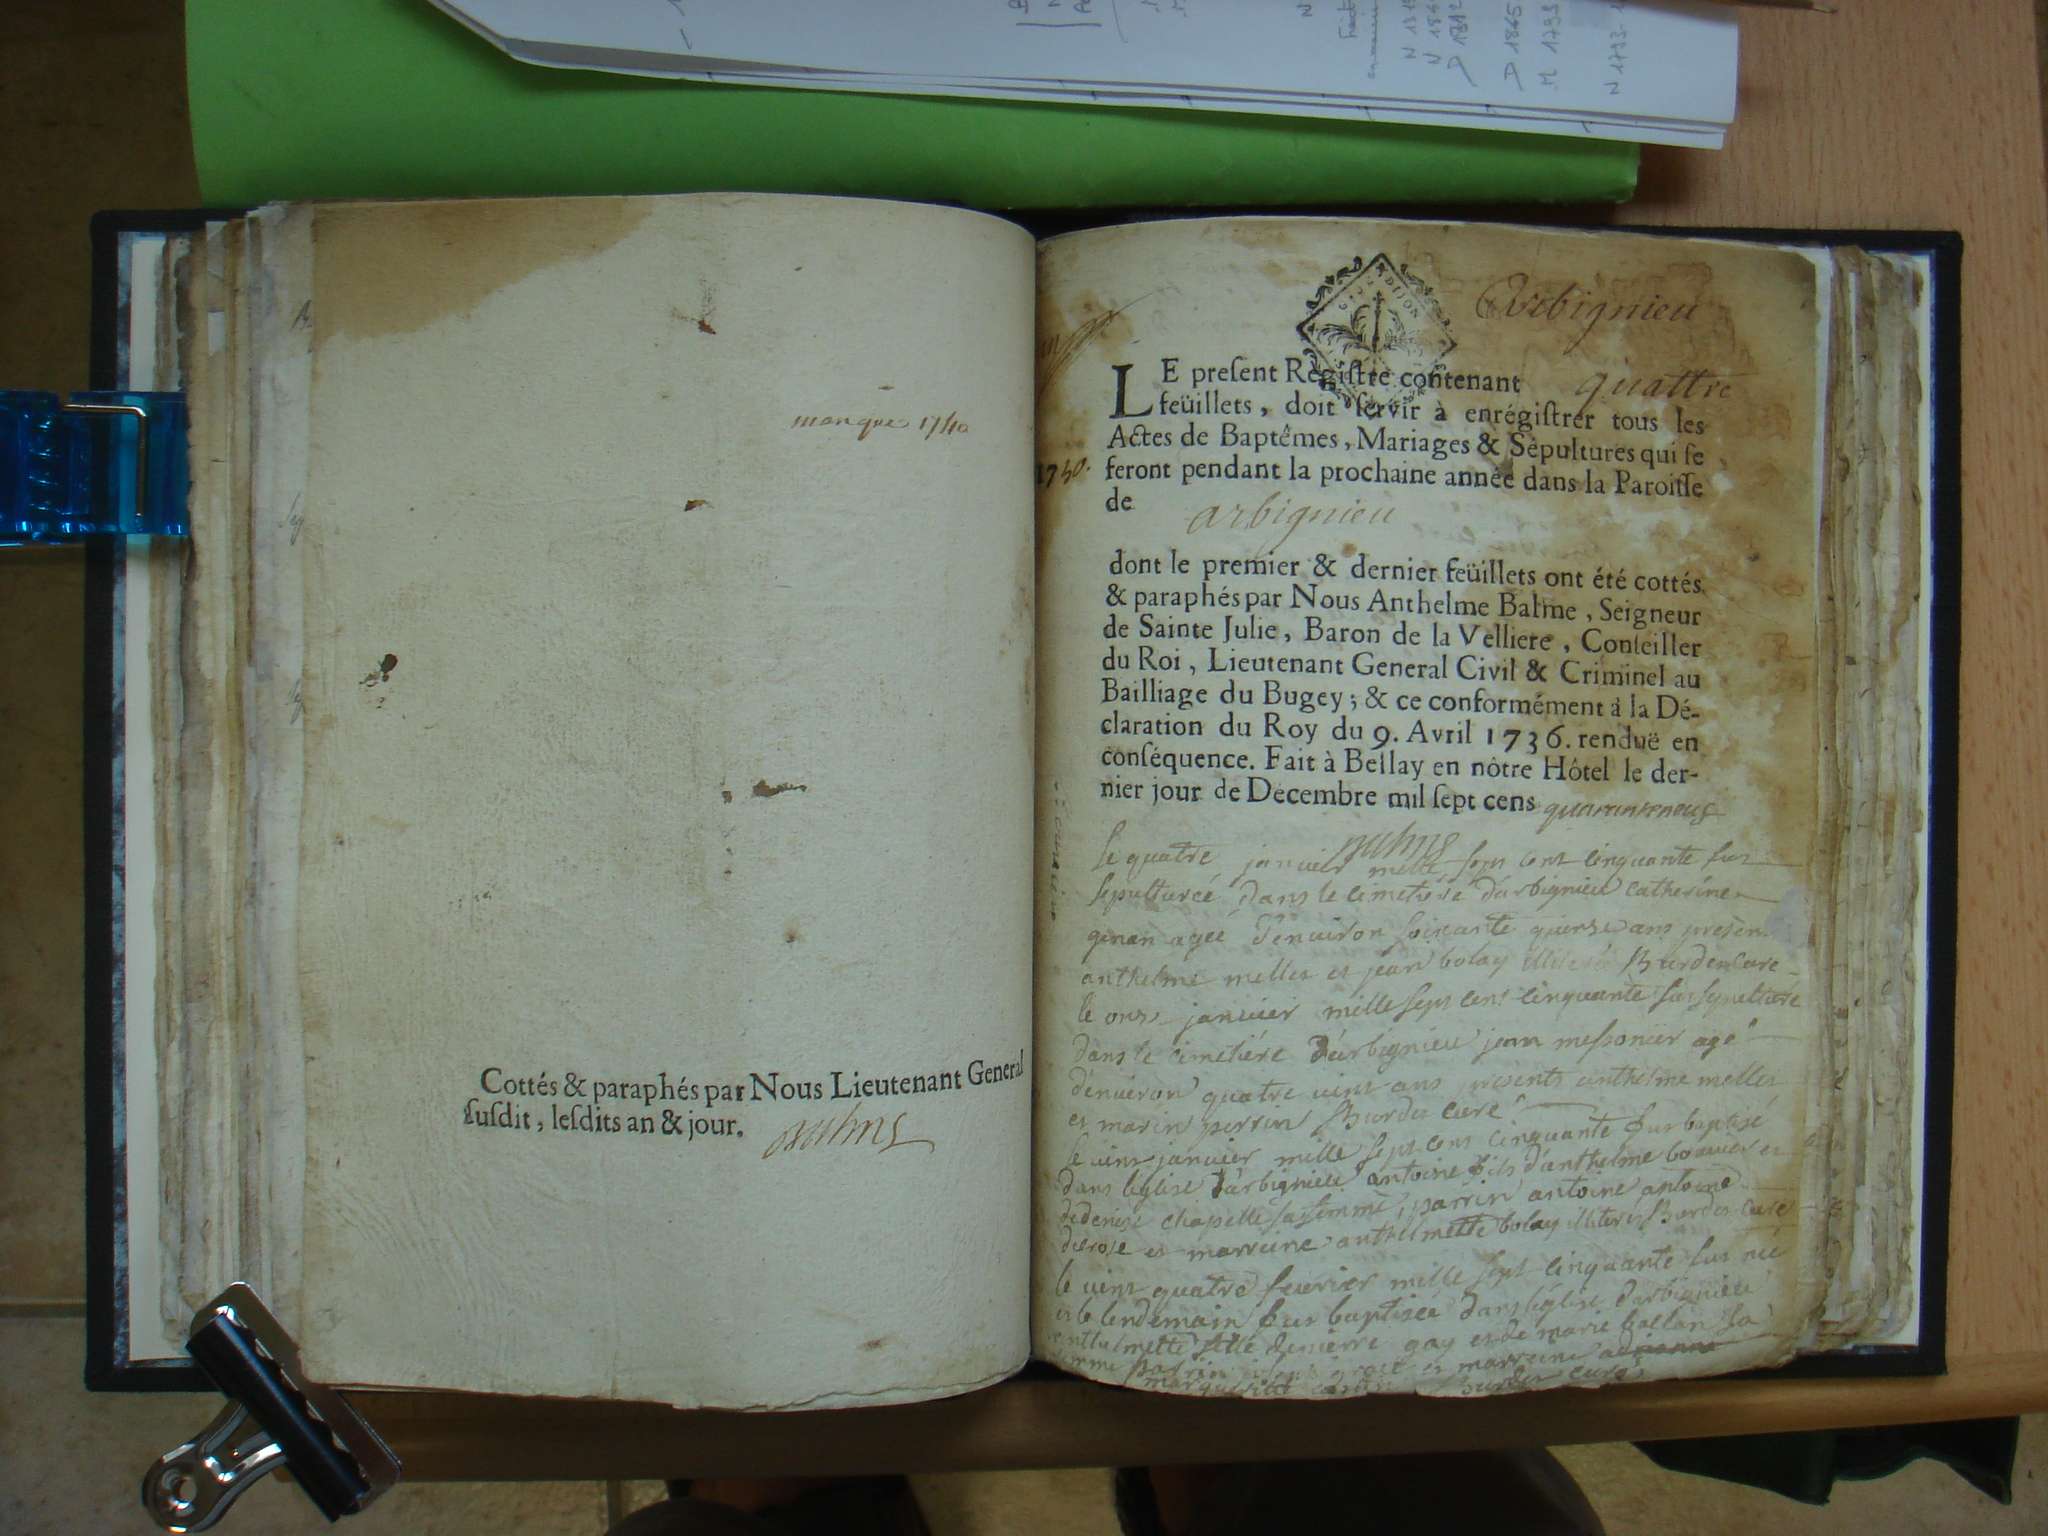 manque 1740
Cottés & paraphés par Nous Lieutenant General
susdit, lesdits an & jour.
Arbignieu
G^en. DIJON
LE present Registre contenant quattre
feüillets, doit servir à enrégistrer tous les
Actes de Baptêmes, Mariages & Sépultures qui se
feront pendant la prochaine année dans la Paroisse
1750.
de arbignieu
dont le premier & dernier feüillets ont été cottés
& paraphés par Nous Anthelme Balme, Seigneur
de Sainte Julie, Baron de la Velliere, Conseiller
du Roi, Lieutenant General Civil & Criminel au
Bailliage du Bugey; & ce conformément à la Dé-
claration du Roy du 9. Avril 1736. renduë en
conséquence. Fait à Bellay en nôtre Hôtel le der-
nier jour de Decembre mil sept cens quarante neuf
le quatre janvier mille sept cent cinquante fut
sepulturée dans le cimetiére d'arbignieu catherine
agée d'environ soixante quinze ans présens
anthelme mellet et jean bolay illiterés Burdet Curé
le onze janvier mille sept cent cinquante fut sepulturé
dans le cimetiére d'arbignieu jean messonier agé
d'environ quatre vint ans presents anthelme mellet
et marin perrin Burdet curé
le vint janvier mille sept cent cinquante fut baptisé
dans l'église d'arbignieu antoine fils d'anthelme bouvier et
de denise chapelle sa femme, parrin antoine antoine
et marreine anthelmette bolay illiterés Burdet curé
le vint quatre fevrier mille sept cinquante fut née
et le lendemain fut baptisée dans l'église d'arbignieu
anthelmette fille de pierre gay et de marie ballan sa
femme parrin et marreine
marguerite Burdet curé